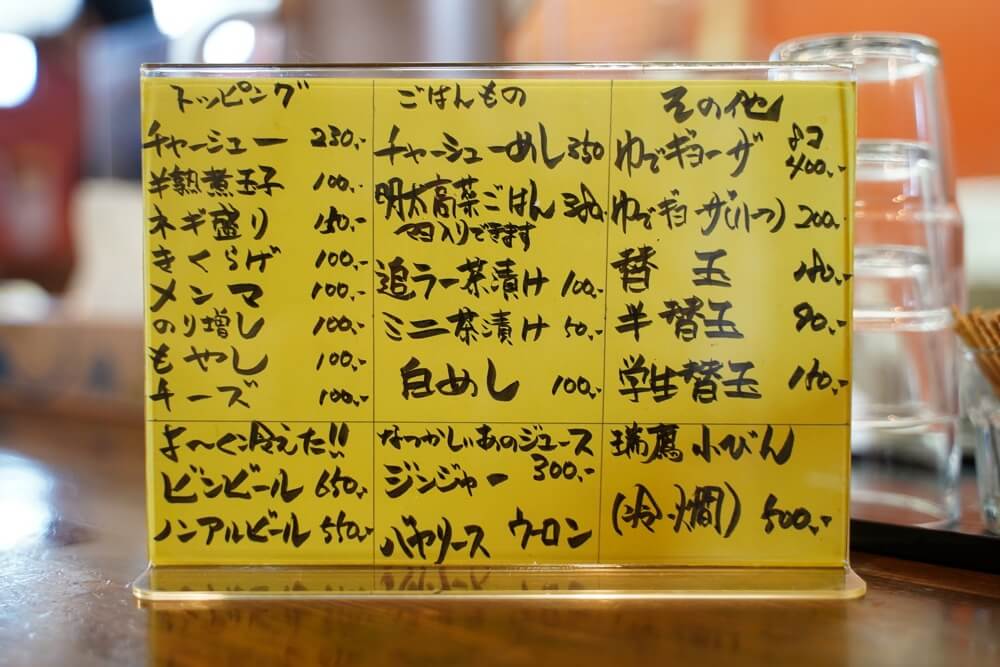 トッピング
チャーシュー 230.-
半熟煮玉子 100.-
ネギ盛り 150.-
きくらげ 100.-
メンマ 100.-
のり増し 100.-
もやし 100.-
チーズ 100.-
ごはんもの
チャーシューめし 350
明太高菜ごはん
入りできます
追ラー茶漬け 100.-
ミニ茶漬け 50.-
白めし 100.-
その他
ゆでギョーザ 8コ 400.-
ゆでギョーザ(ハーフ) 200.-
替玉
半替玉
学生替玉
よ〜く冷えた!!
ビンビール 650.-
ノンアルビール 550.-
なつかしいあのジュース
300.-
ジンジャー
バヤリース ウーロン
瑞鷹 小びん
(冷・燗) 500.-